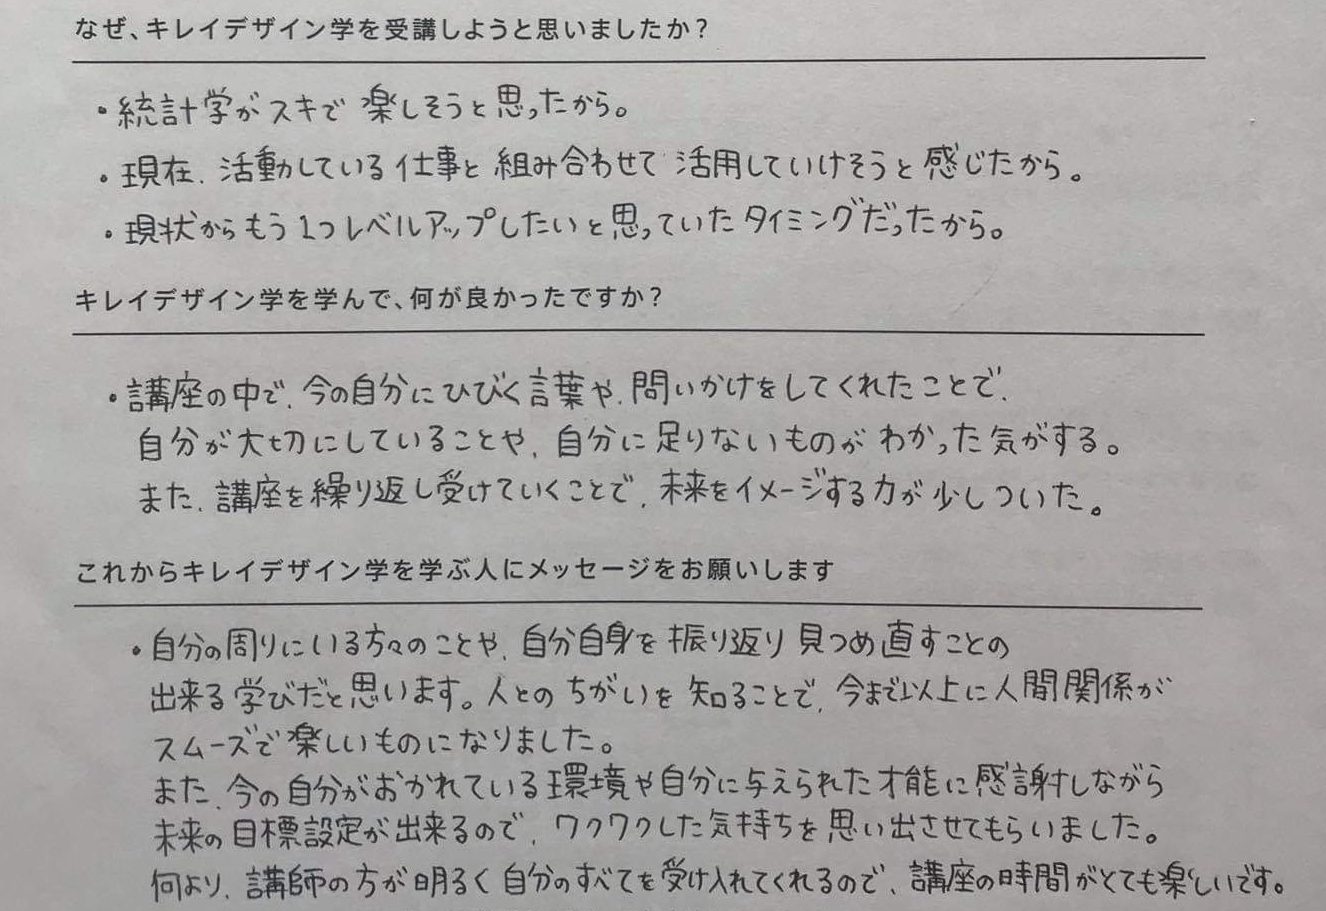 なぜ、キレイデザイン学を受講しようと思いましたか?
・統計学がスキで楽しそうと思ったから。
・現在、活動している仕事と組み合わせて活用していけそうと感じたから。
・現状からもう1つレベルアップしたいと思っていたタイミングだったから。
キレイデザイン学を学んで、何が良かったですか?
・講座の中で、今の自分にひびく言葉や、問いかけをしてくれたことで、
自分が大切にしていることや、自分に足りないものがわかった気がする。
また、講座を繰り返し受けていくことで、未来をイメージする力が少しついた。
これからキレイデザイン学を学ぶ人にメッセージをお願いします
・自分の周りにいる方々のことや、自分自身を振り返り見つめ直すことの
出来る学びだと思います。人とのちがいを知ることで、今まで以上に人間関係が
スムーズで楽しいものになりました。
また、今の自分がおかれている環境や自分に与えられた才能に感謝しながら
未来の目標設定が出来るので、ワクワクした気持ちを思い出させてもらいました。
何より、講師の方が明るく自分のすべてを受け入れてくれるので、講座の時間がとても楽しいです。